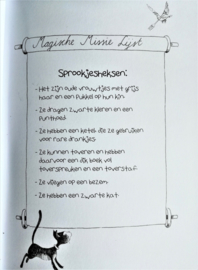 Magische Missie Lijst
Sprookjesheksen:
- Het zijn oude vrouwtjes met grijs
haar en een pukkel op hun kin
- Ze dragen zwarte kleren en een
punthoed
- Ze hebben een ketel die ze gebruiken
voor rare drankjes
- Ze kunnen toveren en hebben
daarvoor een dik boek vol
toverspreuken en een toverstaf
- Ze vliegen op een bezem
- Ze hebben een zwarte kat